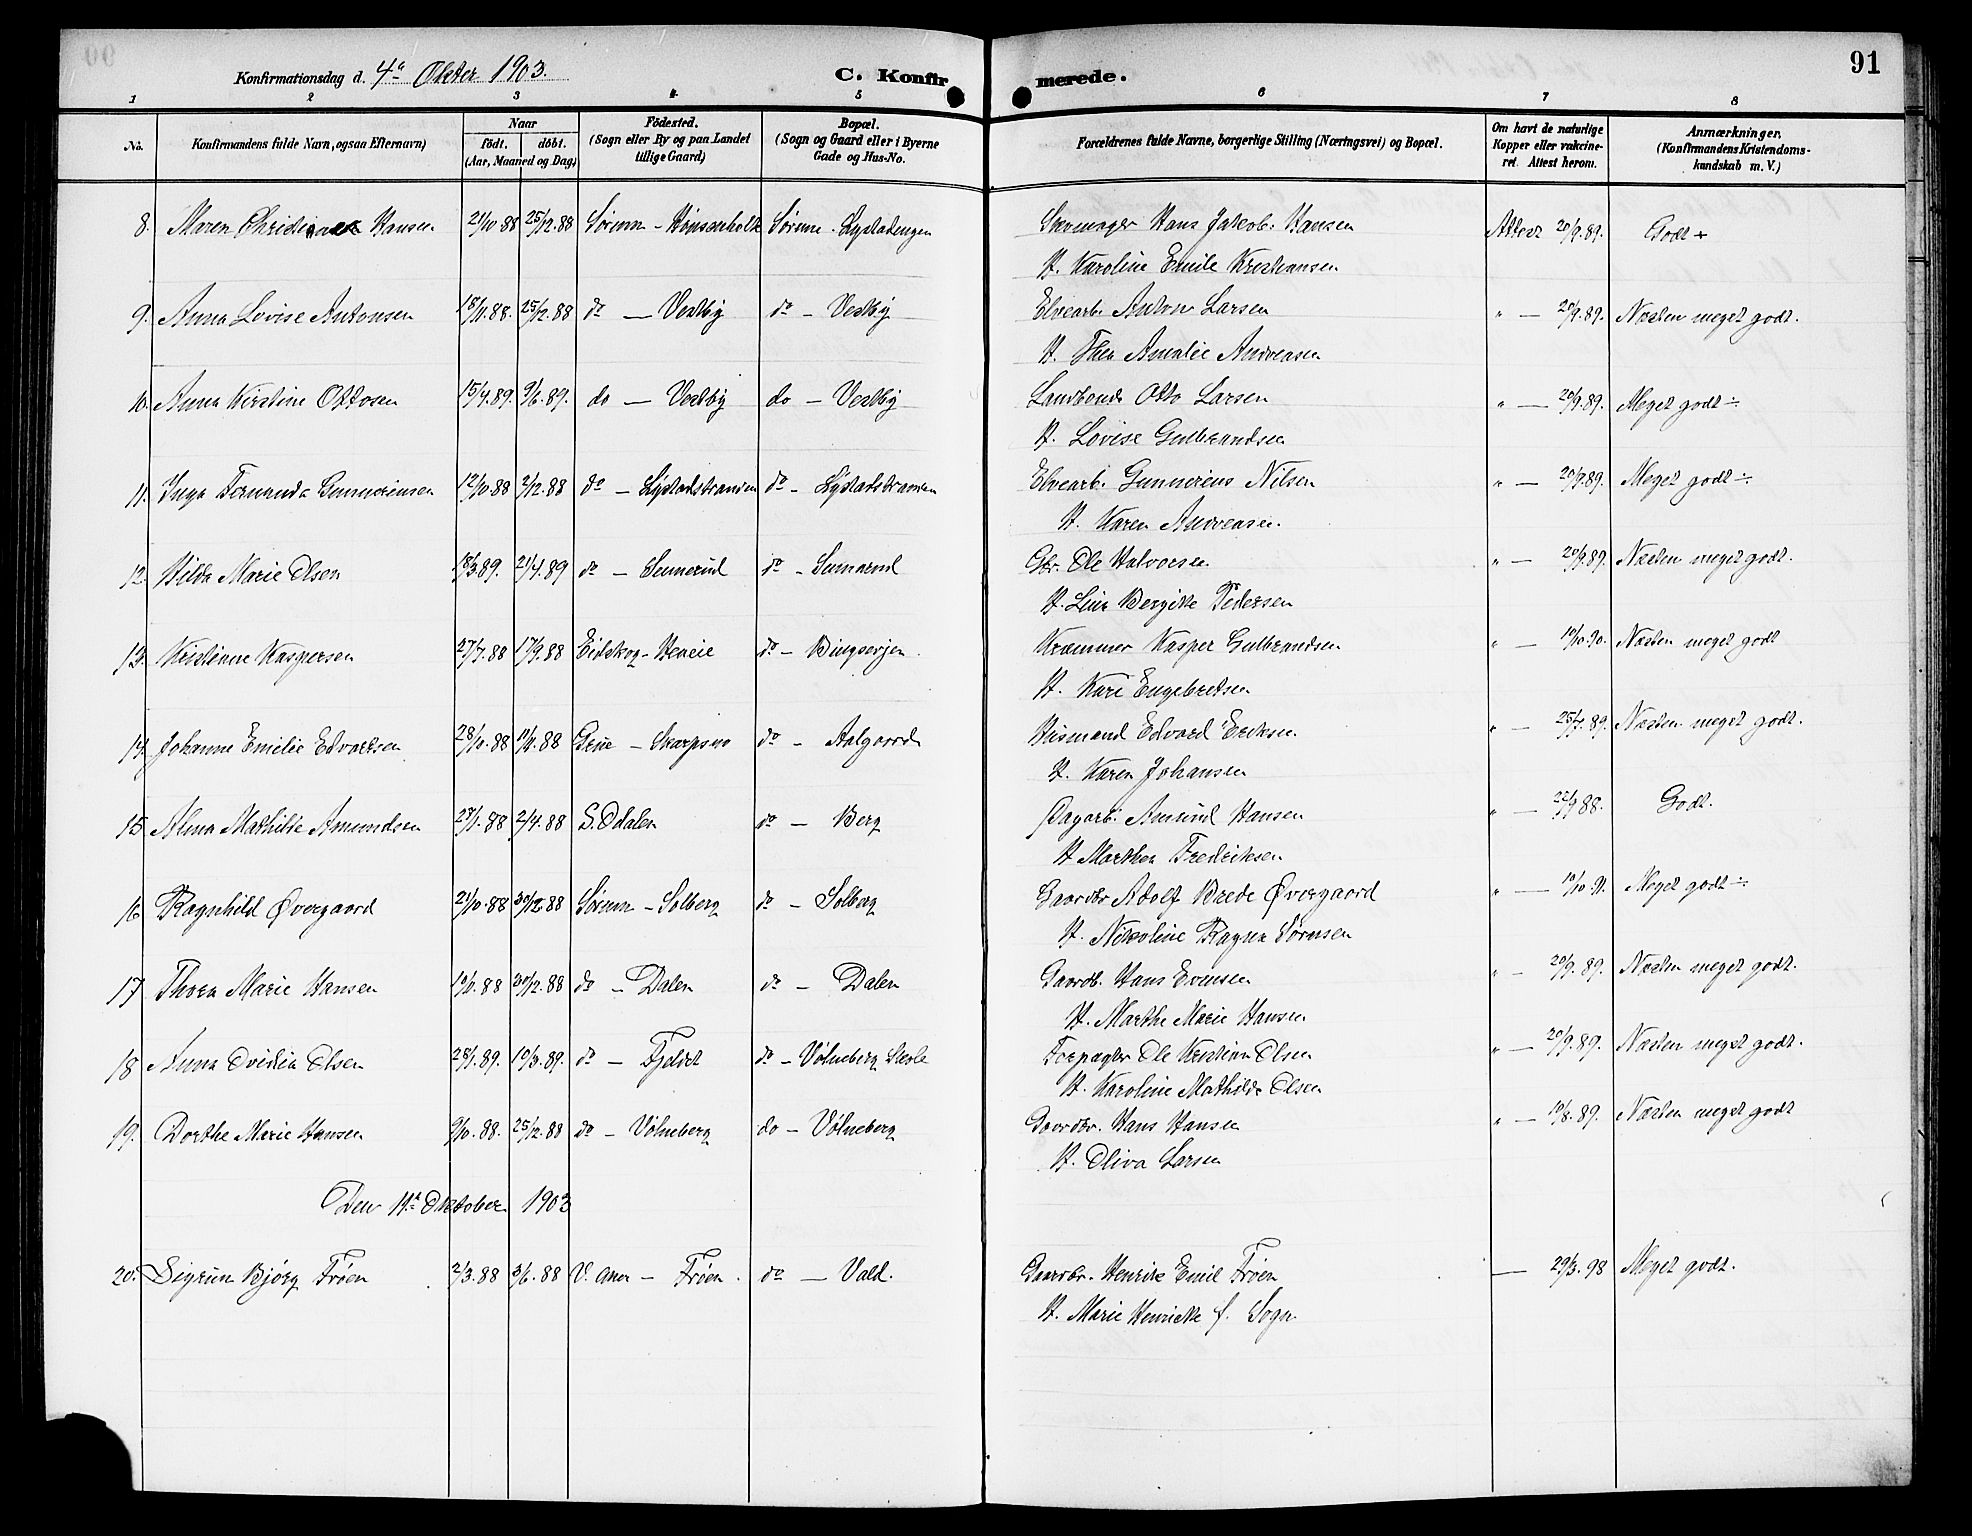 91
Konfirmationsdag d. 4de Oktbr 1903. C. Konfirmerede.
1 2 3 4 5 6 7 8
No. Konfirmandens fulde Navn, ogsaa Efternavn) Naar födt. döbt. (Aar, Maaned og Dag) Födested. (Sogn eller By og paa Landet tillige Gaard) Bopæl. (Sogn og Gaard eller i Byerne Gade og Hus-No. Forældrenes fulde Navne, borgerlige Stilling (Næringsvei) og Bopæl. Om havt de naturlige Kopper eller vakcineret. Attest herom. Anmærkninger. (Konfirmandens Kristendomskundskab m. V.)
8. Maren Hansen 21/10 88 25/12.88 Sørum - Sørum - Skomager Hans Jakob Hansen Attest 20/9.89. Godt +
H. Karoline Emile Kristiansen
9. Anna Lovise Antonsen 18/11.88. 25/12.88 do - Vestby do - Vestby Elvearb. Anton Larsen " — 20/9.89. Næsten meget godt.
H. Thea Amalie Andreasen
10. Anna Kirstine Ottosen 15/4.89. 9/6.89. do — Vestby do - Vestby Otto Larsen " — 20/9.89. Meget godt ÷
H. Lovise Gulbrandsen
11. Inga Fernanda Gunneriusen 12/10.88 2/12.88 do - Lystadstranden do - Lystadstranden Elvearb. Gunnerius Nilsen " — 20/9.89. Meget godt ÷
H. Karen Andreasen.
12. Hilda Marie Olsen 18/3.89. 21/4.89 do - do - Gbr. Ole Halvorsen " — 20/9.89. Næsten meget godt.
H. Lina Bergitte Pedersen
13. Kristiane Kaspersen 27/7.88 17/9.88 Eidskog - do - Kræmmer Kasper Gulbrandsen " — 10/10.90. Næsten meget godt
H. Kari Engebretsen
14. Johanne Emilie Edvardsen 28/10.88 11/11.88 Grue - Skarpsno do - Aalgaard Husmand Edvard Eriksen " — 25/9.89. Næsten meget godt.
H. Karen Johansen
15. Alma Mathilde Amundsen 27/1.88 2/4.88 S. Odalen do - Berg Dagarb. Amund Hansen " — 22/9.88. Godt.
H. Marthea Fredriksen
16. Ragnhild Øvergaard 21/10.88 30/12.88 Sørum - Solberg do - Solberg Gaardbr. Adolf Brede Øvergaard " — 10/10.91. Meget godt ÷
H. Nikoline Ragna Sørensen
17. Thora Marie Hansen 30/12.88 do - Dalen do - Dalen Gaardb. Hans Evensen " - 20/9.89. Næsten meget godt.
H. Marthe Marie Hansen
18. Anna Ovidia Olsen 28/1.89. 10/3.89. do - Fjeldet do - Vølneberg Skole Forpagter Ole Kristian Olsen " — 20/9.89. Næsten meget godt.
H. Karoline Mathilde Olsen
19. Dorthe Marie Hansen 9/10.88. 25/12.88 do - Vølneberg do - Vølneberg Gaardbr. Hans Hansen " — 10/8.89. Næsten meget godt
H. Oliva Larsen
Den 11te Oktober 1903
20. Sigrun Bjørg Frøen 2/3.88 3/6.88 V. Aker - Frøen. do - Vald. Gaardbr. Henrik Emil Frøen — 29/3.98 Meget godt.
H. Marie Henrikke f. Sogn